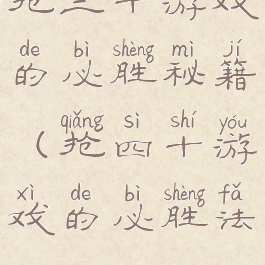 抢三十游戏
de bì shèng mì jí
的必胜秘籍
qiǎng sì shí yóu
(抢四十游
xì de bì shèng fǎ
戏的必胜法